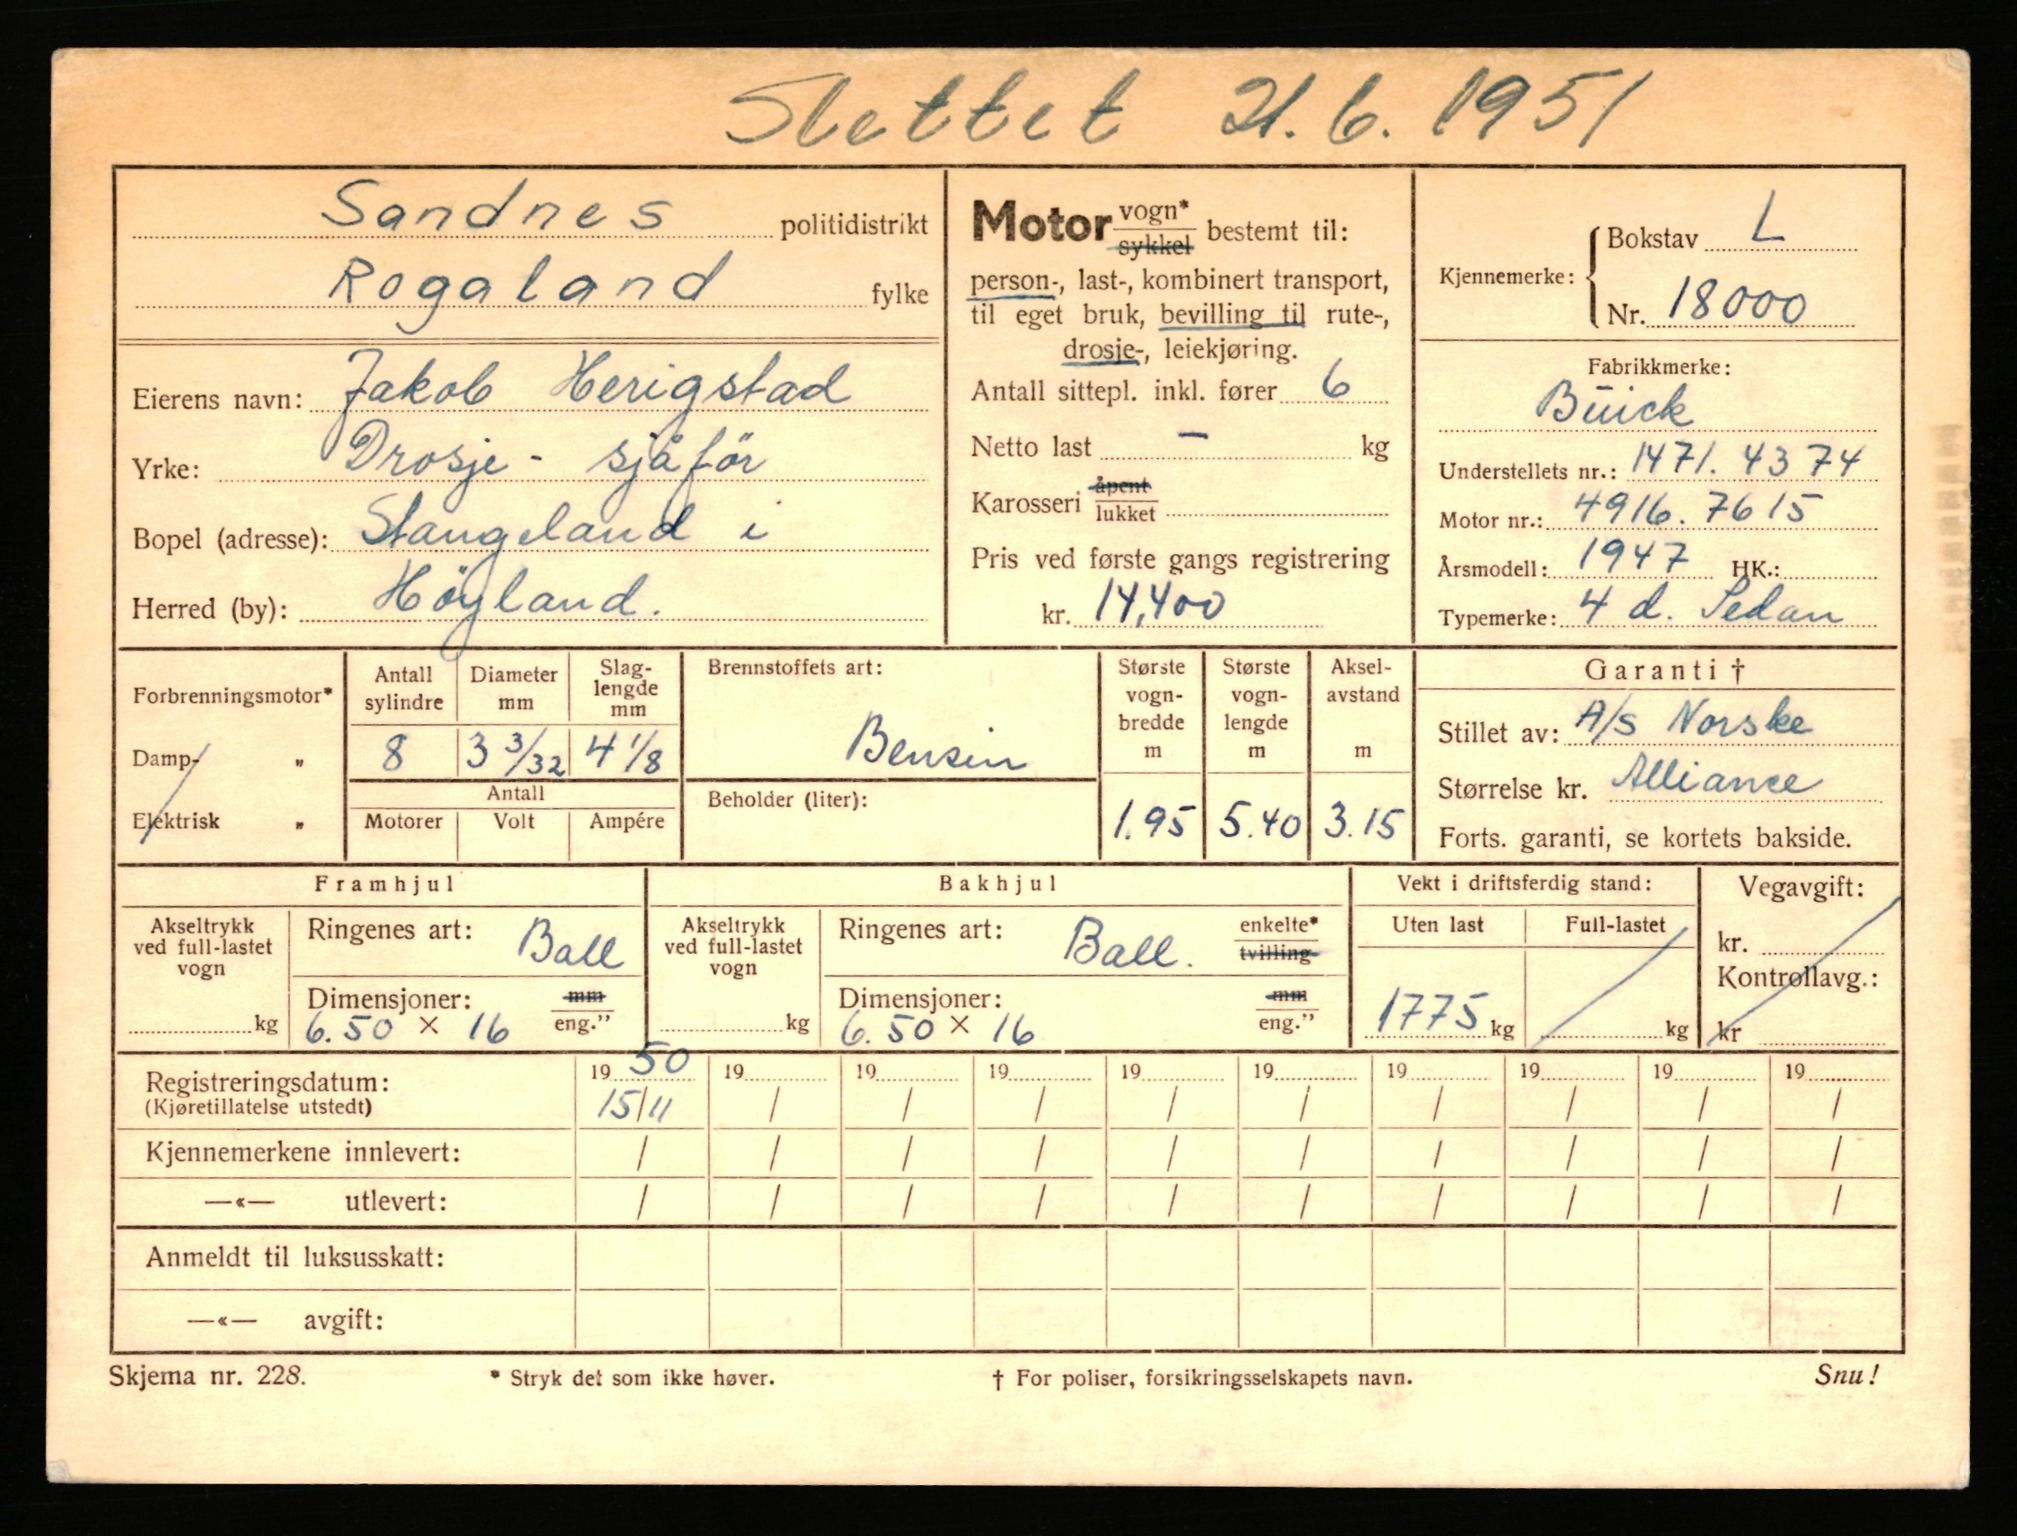 Slettet 21.6.1951
Sandnes politidistrikt
Rogaland fylke
Eierens navn: Jakob Herigstad
Yrke: Drosje - sjåför
Bopel (adresse): Stangeland i
Herred (by): Höyland.
Motor vogn* / sykkel bestemt til:
person-, last-, kombinert transport,
til eget bruk, bevilling til rute-,
drosje-, leiekjøring.
Antall sittepl. inkl. fører 6
Netto last — kg
Karosseri åpent / lukket
Pris ved første gangs registrering
kr. 14,400
Kjennemerke: Bokstav L
Nr. 18000
Fabrikkmerke:
Buick
Understellets nr.: 1471.4374
Motor nr.: 4916.7615
Årsmodell: 1947 HK.:
Typemerke: 4 d. Sedan
Forbrenningsmotor*
Damp- „
Elektrisk „
Antall sylindre 8
Diameter mm 3 3/32
Slaglengde mm 4 1/8
Antall
Motorer Volt Ampére
Brennstoffets art:
Bensin
Beholder (liter):
Største vognbredde m 1.95
Største vognlengde m 5.40
Akselavstand m 3.15
Garanti †
Stillet av: A/S Norske
Størrelse kr. Alliance
Forts. garanti, se kortets bakside.
Framhjul
Akseltrykk ved full-lastet vogn kg
Ringenes art: Ball
Dimensjoner: mm / eng."
6.50 × 16
Bakhjul
Akseltrykk ved full-lastet vogn kg
Ringenes art: Ball. enkelte* / tvilling
Dimensjoner: mm / eng."
6.50 × 16
Vekt i driftsferdig stand:
Uten last Full-lastet
1775 kg kg
Vegavgift:
kr.
Kontrollavg.:
kr
Registreringsdatum: 19 50 19 19 19 19 19 19 19 19 19
(Kjøretillatelse utstedt) 15/11 / / / / / / / / /
Kjennemerkene innlevert: / / / / / / / / / /
—«— utlevert: / / / / / / / / / /
Anmeldt til luksusskatt:
—«— avgift:
Skjema nr. 228. * Stryk det som ikke høver. † For poliser, forsikringsselskapets navn. Snu!